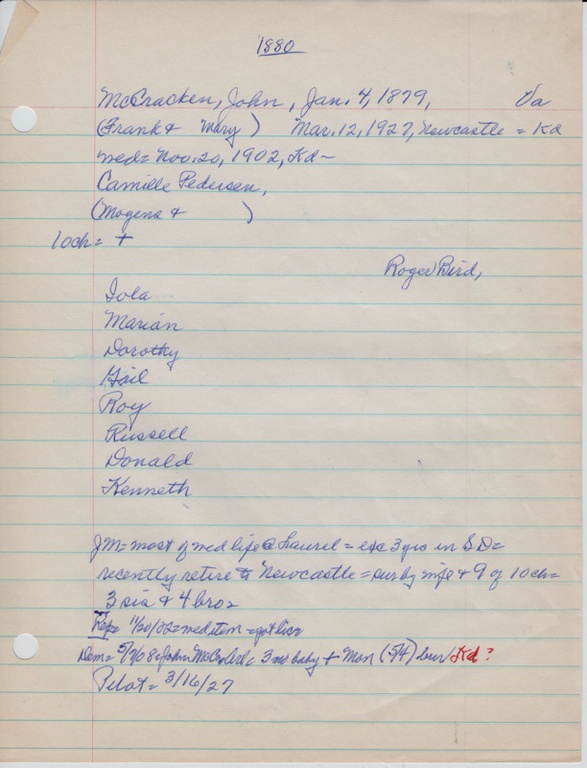 1880
McCracken, John, Jan. 4, 1879, Va
(Frank & Mary) Mar. 12, 1927, Newcastle = Kd
med = Nov. 20, 1902, Kd ~
Camille Pedersen,
(Mogens & )
10ch = +
Roger Bird,
Iola
Marian
Dorothy
Gail
Roy
Russell
Donald
Kenneth
JM = most of med life @ Laurel = exc 3 yrs in SD =
recently retire to Newcastle = sur by wife & 9 of 10ch =
3 sis & 4 bros
11/20/02 = med item = got lics
Dem = 5/7/08 = John McC 3 mo baby + Mon (5/4) bur Kd?
Pilot = 3/16/27